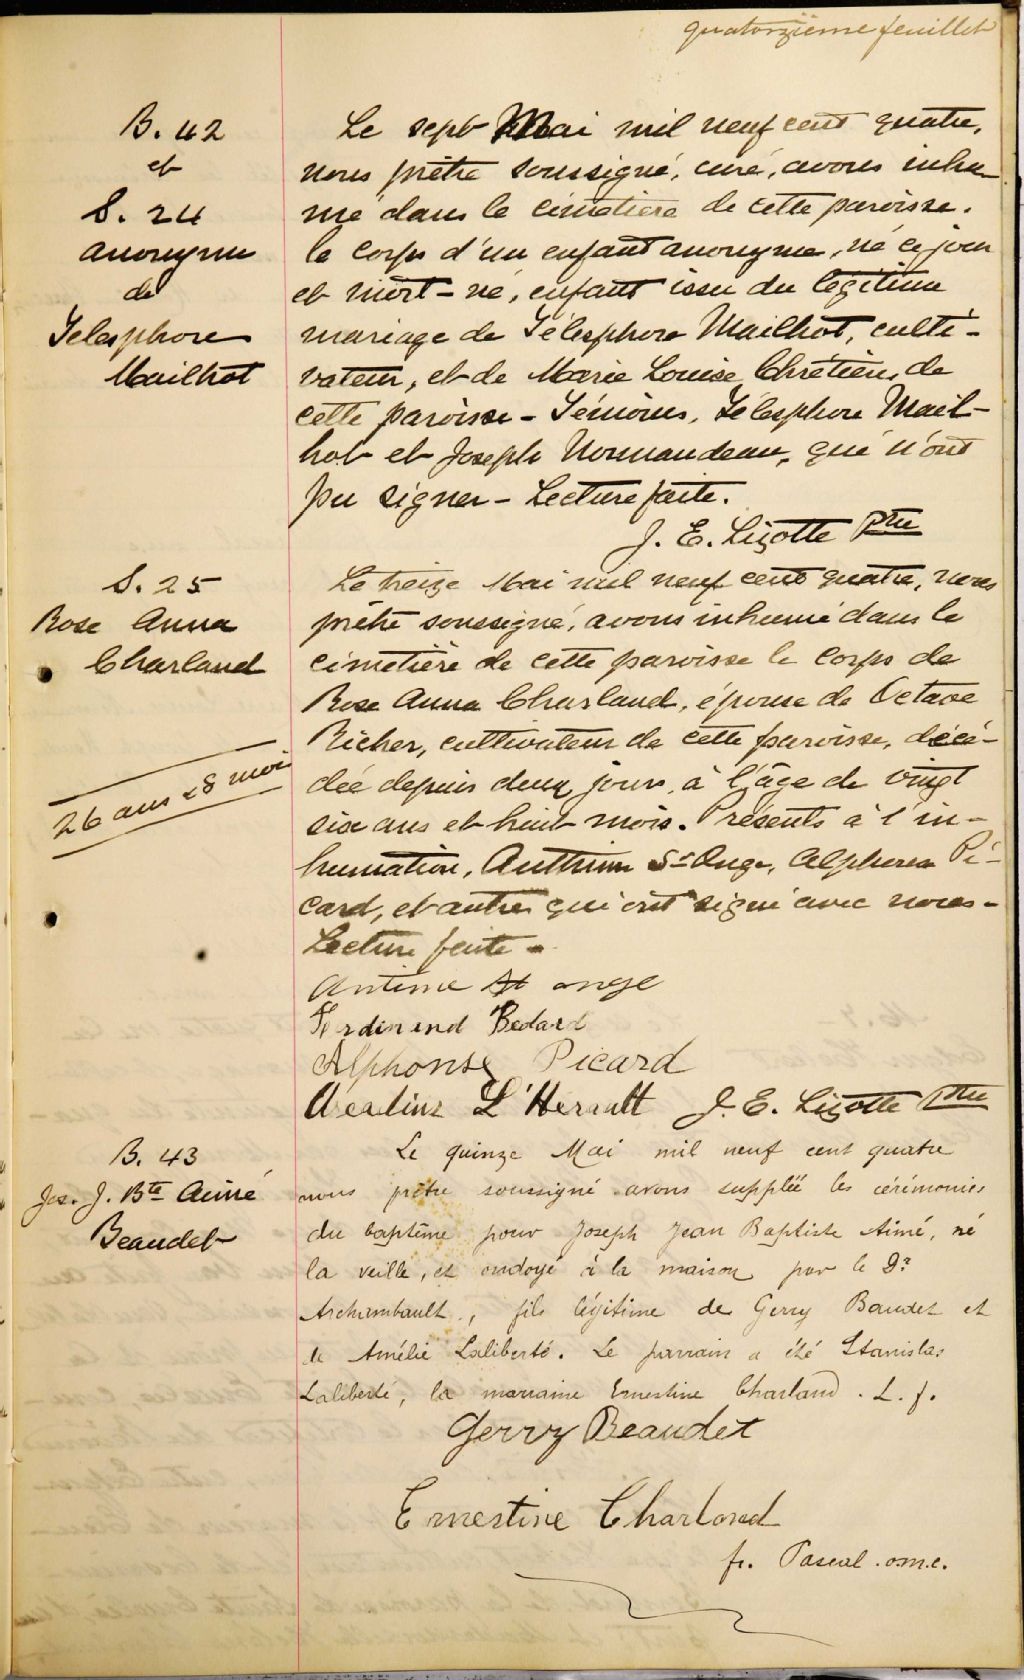 quatorzième feuillet
B. 42
et
S. 24
anonyme
de
Télesphore
Mailhot
Le sept Mai mil neuf cent quatre,
nous prêtre soussigné, curé, avons inhu-
mé dans le cimetière de cette paroisse.
le corps d'un enfant anonyme, né ce jour
et mort-né, enfant issu du légitime
mariage de Télesphore Mailhot, culti-
vateur, et de Marie Louise Chrétien, de
cette paroisse - Témoins, Télesphore Mail-
hot et Joseph Normandeau, qui n'ont
pu signer - Lecture faite.
J. E. Lizotte Ptre
S. 25
Rose Anna
Charland
26 ans & 8 moi
Le treize Mai mil neuf cent quatre, nous
prêtre soussigné, avons inhumé dans le
cimetière de cette paroisse le corps de
Rose Anna Charland, épouse de Octave
Richer, cultivateur de cette paroisse, décé-
dée depuis deux jours, à l'âge de vingt
six ans et huit mois. Présents à l'in-
humation, Anthime St Onge, Alphonse Pi-
card, et autres qui ont signé avec nous -
Lecture faite -
Antime St onge
Ferdinend Bedard
Alphonse Picard
Arcadius L'Herault J. E. Lizotte Ptre
B. 43
Jos. J. Bte Aimé
Beaudet
Le quinze Mai mil neuf cent quatre
nous prêtre soussigné avons suppléé les cérémonies
du baptême pour Joseph Jean Baptiste Aimé, né
la veille, et ondoyé à la maison par le Dr
Archambault, fils légitime de Gerry Baudet et
de Amélie Laliberté. Le parrain a été Stanislas
Laliberté, la marraine Ernestine Charland. L. f.
Gerry Beaudet
Ernestine Charland
fr. Pascal . o.m.c.